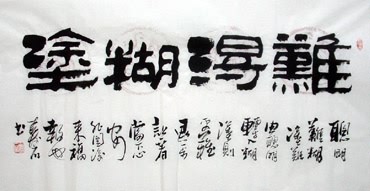 難得糊塗
聰明
難糊
塗難
由聰明
轉入糊
塗則
更難
當下心
安
非圖後
來福
報也
書